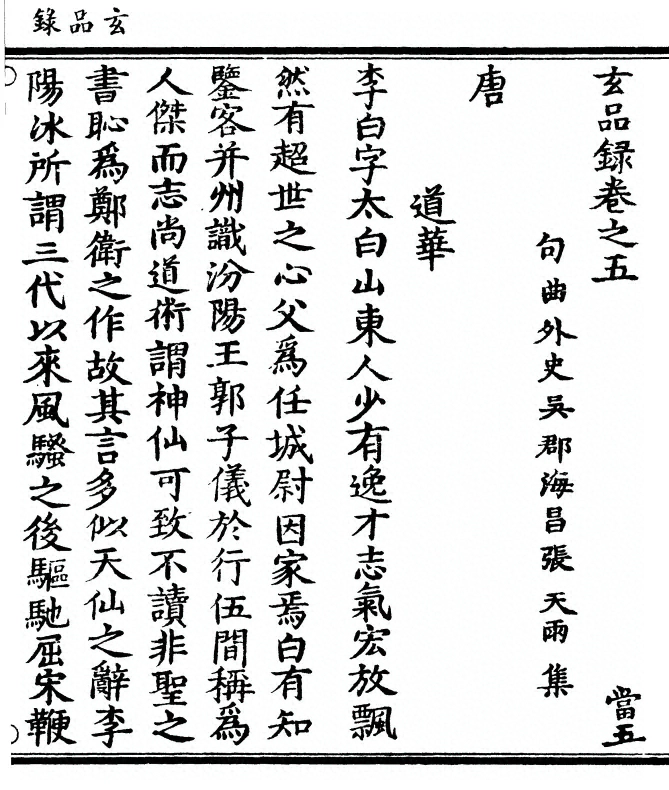 玄品錄
玄品錄卷之五
當五
句曲外史吳郡海昌張天雨集
唐
道華
李白字太白山東人少有逸才志氣宏放飄
然有超世之心父爲任城尉因家焉白有知
鑒客并州識汾陽王郭子儀於行伍間稱爲
人傑而志尚道術謂神仙可致不讀非聖之
書恥爲鄭衛之作故其言多似天仙之辭李
陽冰所謂三代以來風騷之後驅馳屈宋鞭